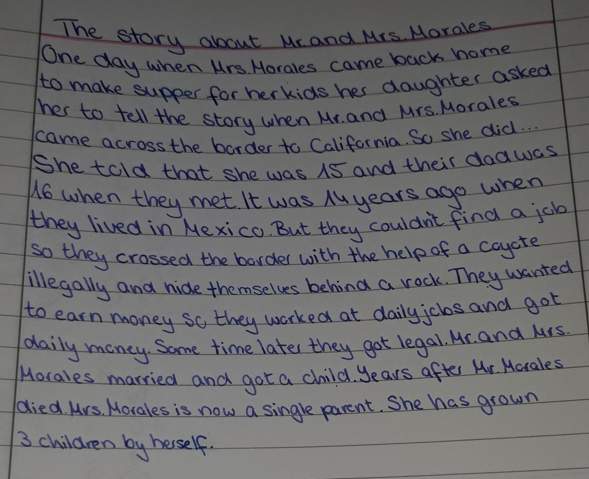 The story about Mr. and Mrs. Morales
One day when Mrs. Morales came back home
to make supper for her kids her daughter asked
her to tell the story when Mr. and Mrs. Morales
came across the border to California. So she did...
She told that she was 15 and their dad was
16 when they met. It was 14 years ago when
they lived in Mexico. But they couldn't find a job
so they crossed the border with the help of a coyote
illegally and hide themselves behind a rock. They wanted
to earn money so they worked at daily jobs and got
daily money. Some time later they got legal. Mr. and Mrs.
Morales married and got a child. Years after Mr. Morales
died Mrs. Morales is now a single parent. She has grown
3 children by herself.